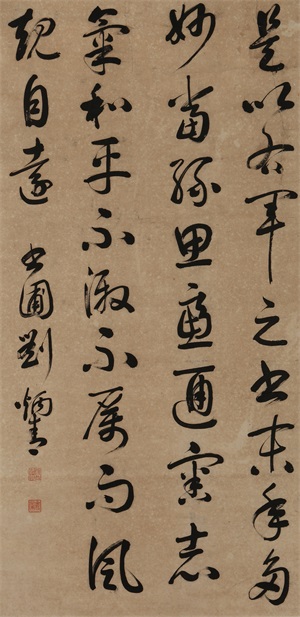 是以右軍之書末年多
妙當緣思慮通審志
氣和平不激不厲而風
規自遠 書圃劉炳